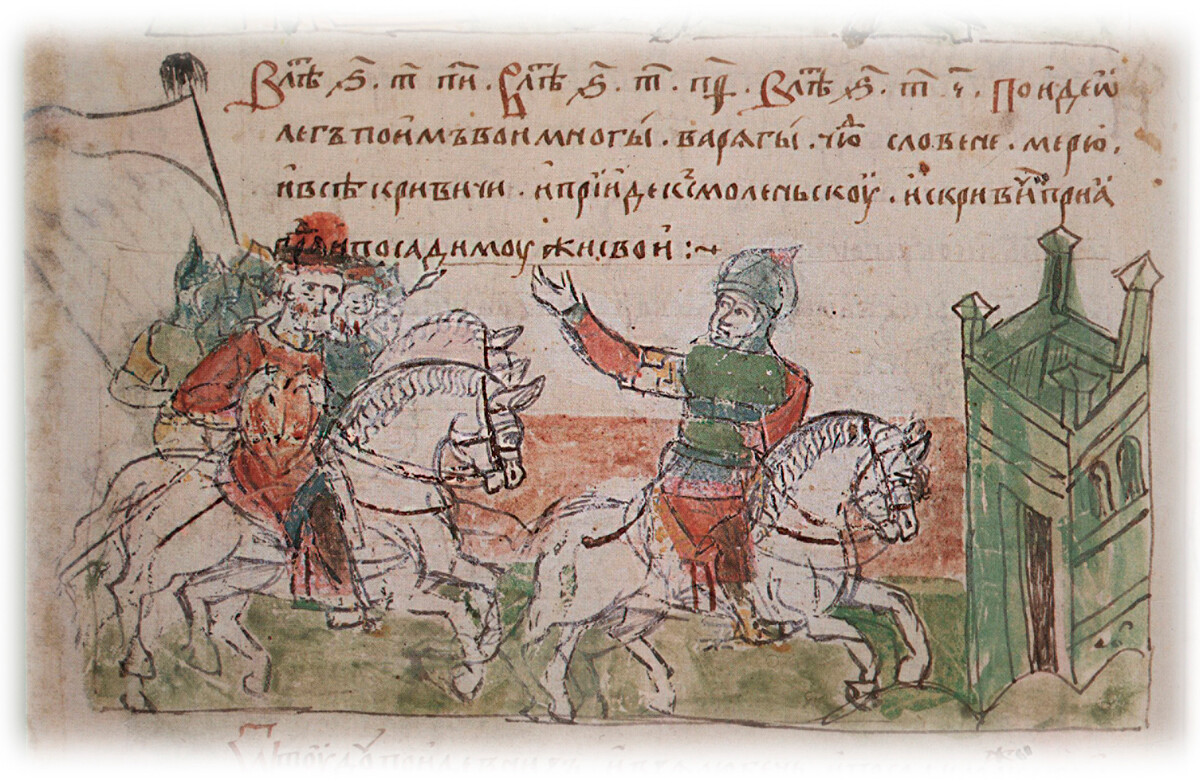 В лѣт҃ ѕ҃. т҃. п҃и. В лѣт҃ ѕ҃. т҃. п҃ѳ. В лѣт҃ ѕ҃. т҃. ч҃. Поиде Ѡ
легъ поимъ вои многы. варягы. чюⷣ словене. мерю.
и всѣ кривичи. и прїиде къ смоленьскоу. и с кривичи приꙗ
граⷣ и посади моужи свои :~